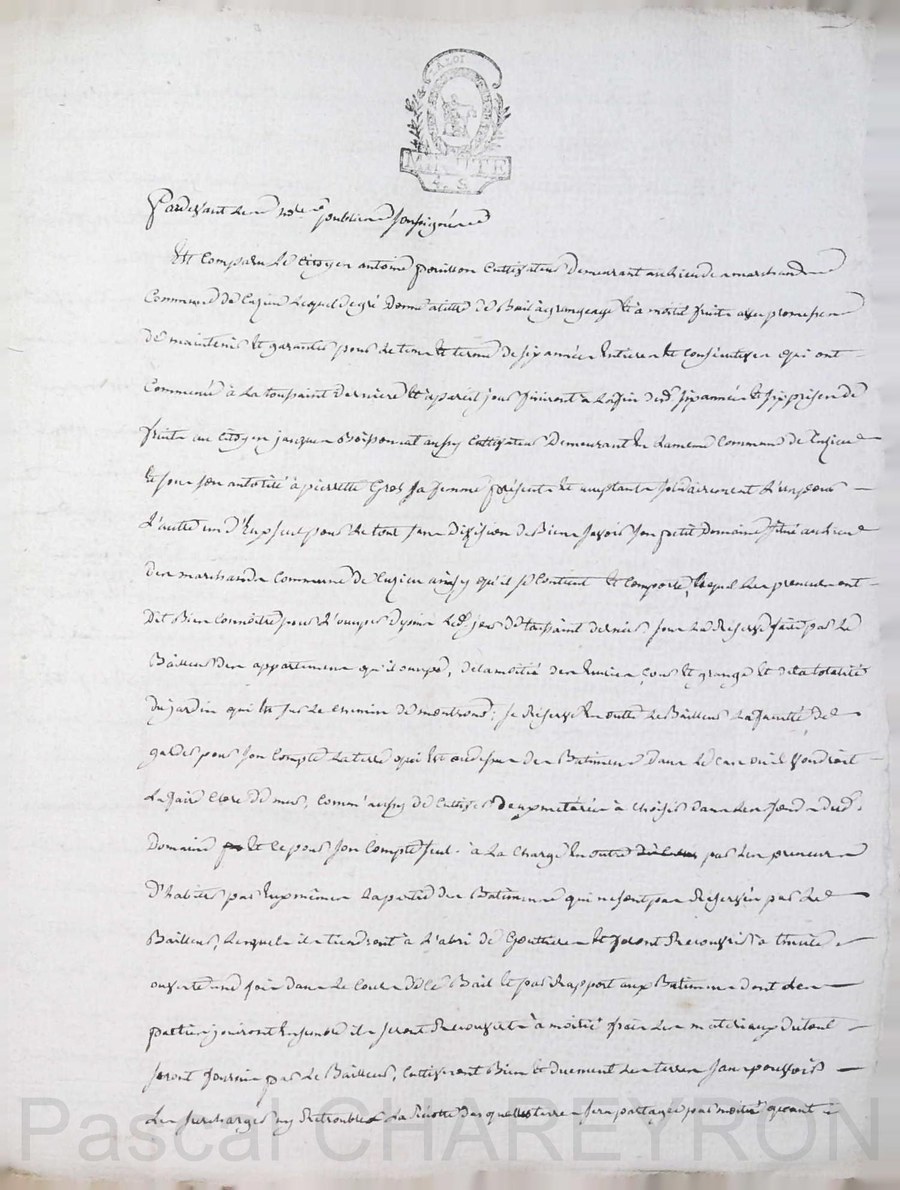 LA LOI
MINUTE
Pardevant les notaires publics soussignés
Est comparu le citoyen antoine pouillon cultivateur demeurant au lieu des marchands
commune de Cuzieu lequel de gré donne a titre de Bail à grangeage et à moitié fruits avec promesse
de maintenir et garantir pour le tems et terme de six années entieres et consécutives qui ont
commencé à la toussaint derniere et à pareil jour finiront a la fin desd. six années et six prises de
fruits au citoyen jacques cultivateur demeurant en la meme commune de Cuzieu
et sous son autorité à pierrette Gros sa femme présents et acceptants solidairement l'un pour
l'autre un d'eux seul pour le tout sans division de Biens savoir son petit Domaine situé au lieu
des marchands commune de Cuzieu ainsy qu'il se contient et comporte, lequel les preneurs ont
dit Bien connoitre pour l'occuper depuis led. jour de toussaint dernier sous la Réserve faite par le
Bailleur des appartements qu'il occupe, de la moitié des cour et grange et de la totalité
du jardin qui est sur le chemin de montrond; se Réserve en outre le Bailleur la faculté de
garder pour son compte la terre qui est au dessus des Batiments dans le cas où il voudroit
la faire clore de murs, comm'aussy de cultiver deux métérées à choisir dans les fonds dud.
Domaine et ce pour son compte seul. à la charge en outre par les preneurs
d'habiter par eux mêmes la partie des Batiments qui ne sont pas Réservés par le
Bailleur, lesquels ils tiendront à l'abri de Gouttieres et feront Recouvrir à
ouverte une fois dans le cours de ce Bail et par Rapport aux Batiments dont les
parties jouiront ensemble ils seront Recouverts à moitié frais les materiaux du tout
seront fournis par le Bailleur, cultiveront Bien et duement les terres sans pouvoir
les surcharger ny Retroubler la Récolte desquelles terres sera partagée par moitié quant
Pascal CHAREYRON